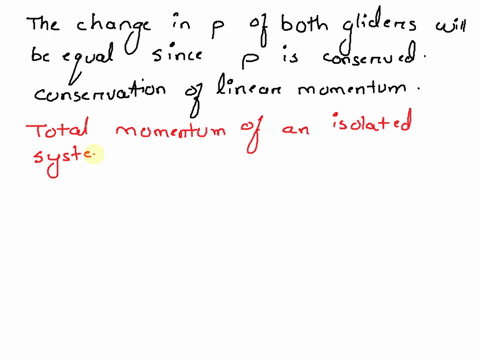 The change in p of both gliders will
be equal since p is conserved.
conservation of linear momentum.
Total momentum of an isolated
syste